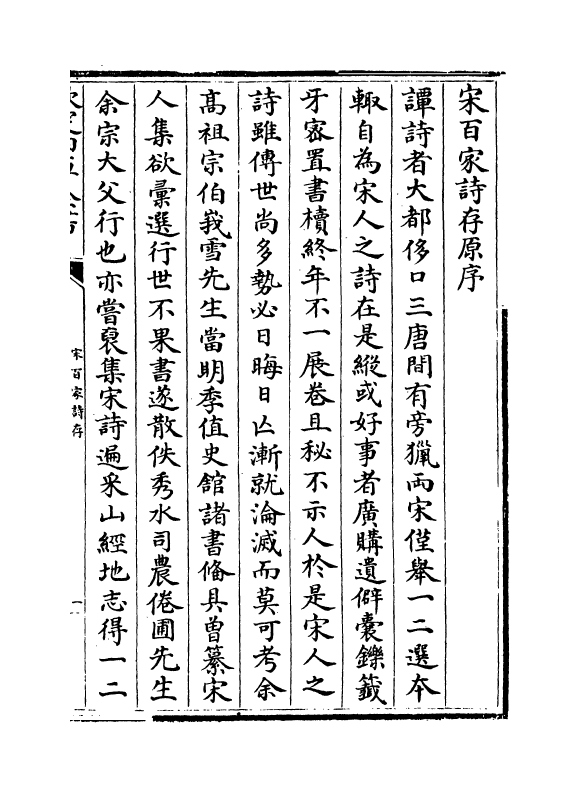 宋百家詩存原序
譚詩者大都侈口三唐間有旁獵兩宋僅舉一二選本
輙自為宋人之詩在是縱或好事者廣購遺僻囊鑠籤
牙宻置書櫝終年不一展卷且秘不示人於是宋人之
詩雖傳世尚多勢必日晦日亾漸就淪滅而莫可考余
髙祖宗伯峩雪先生當明季值史館諸書備具曾纂宋
人集欲彚選行世不果書遂散佚秀水司農倦圃先生
余宗大父行也亦嘗裒集宋詩遍采山經地志得一二
宋百家詩存
一